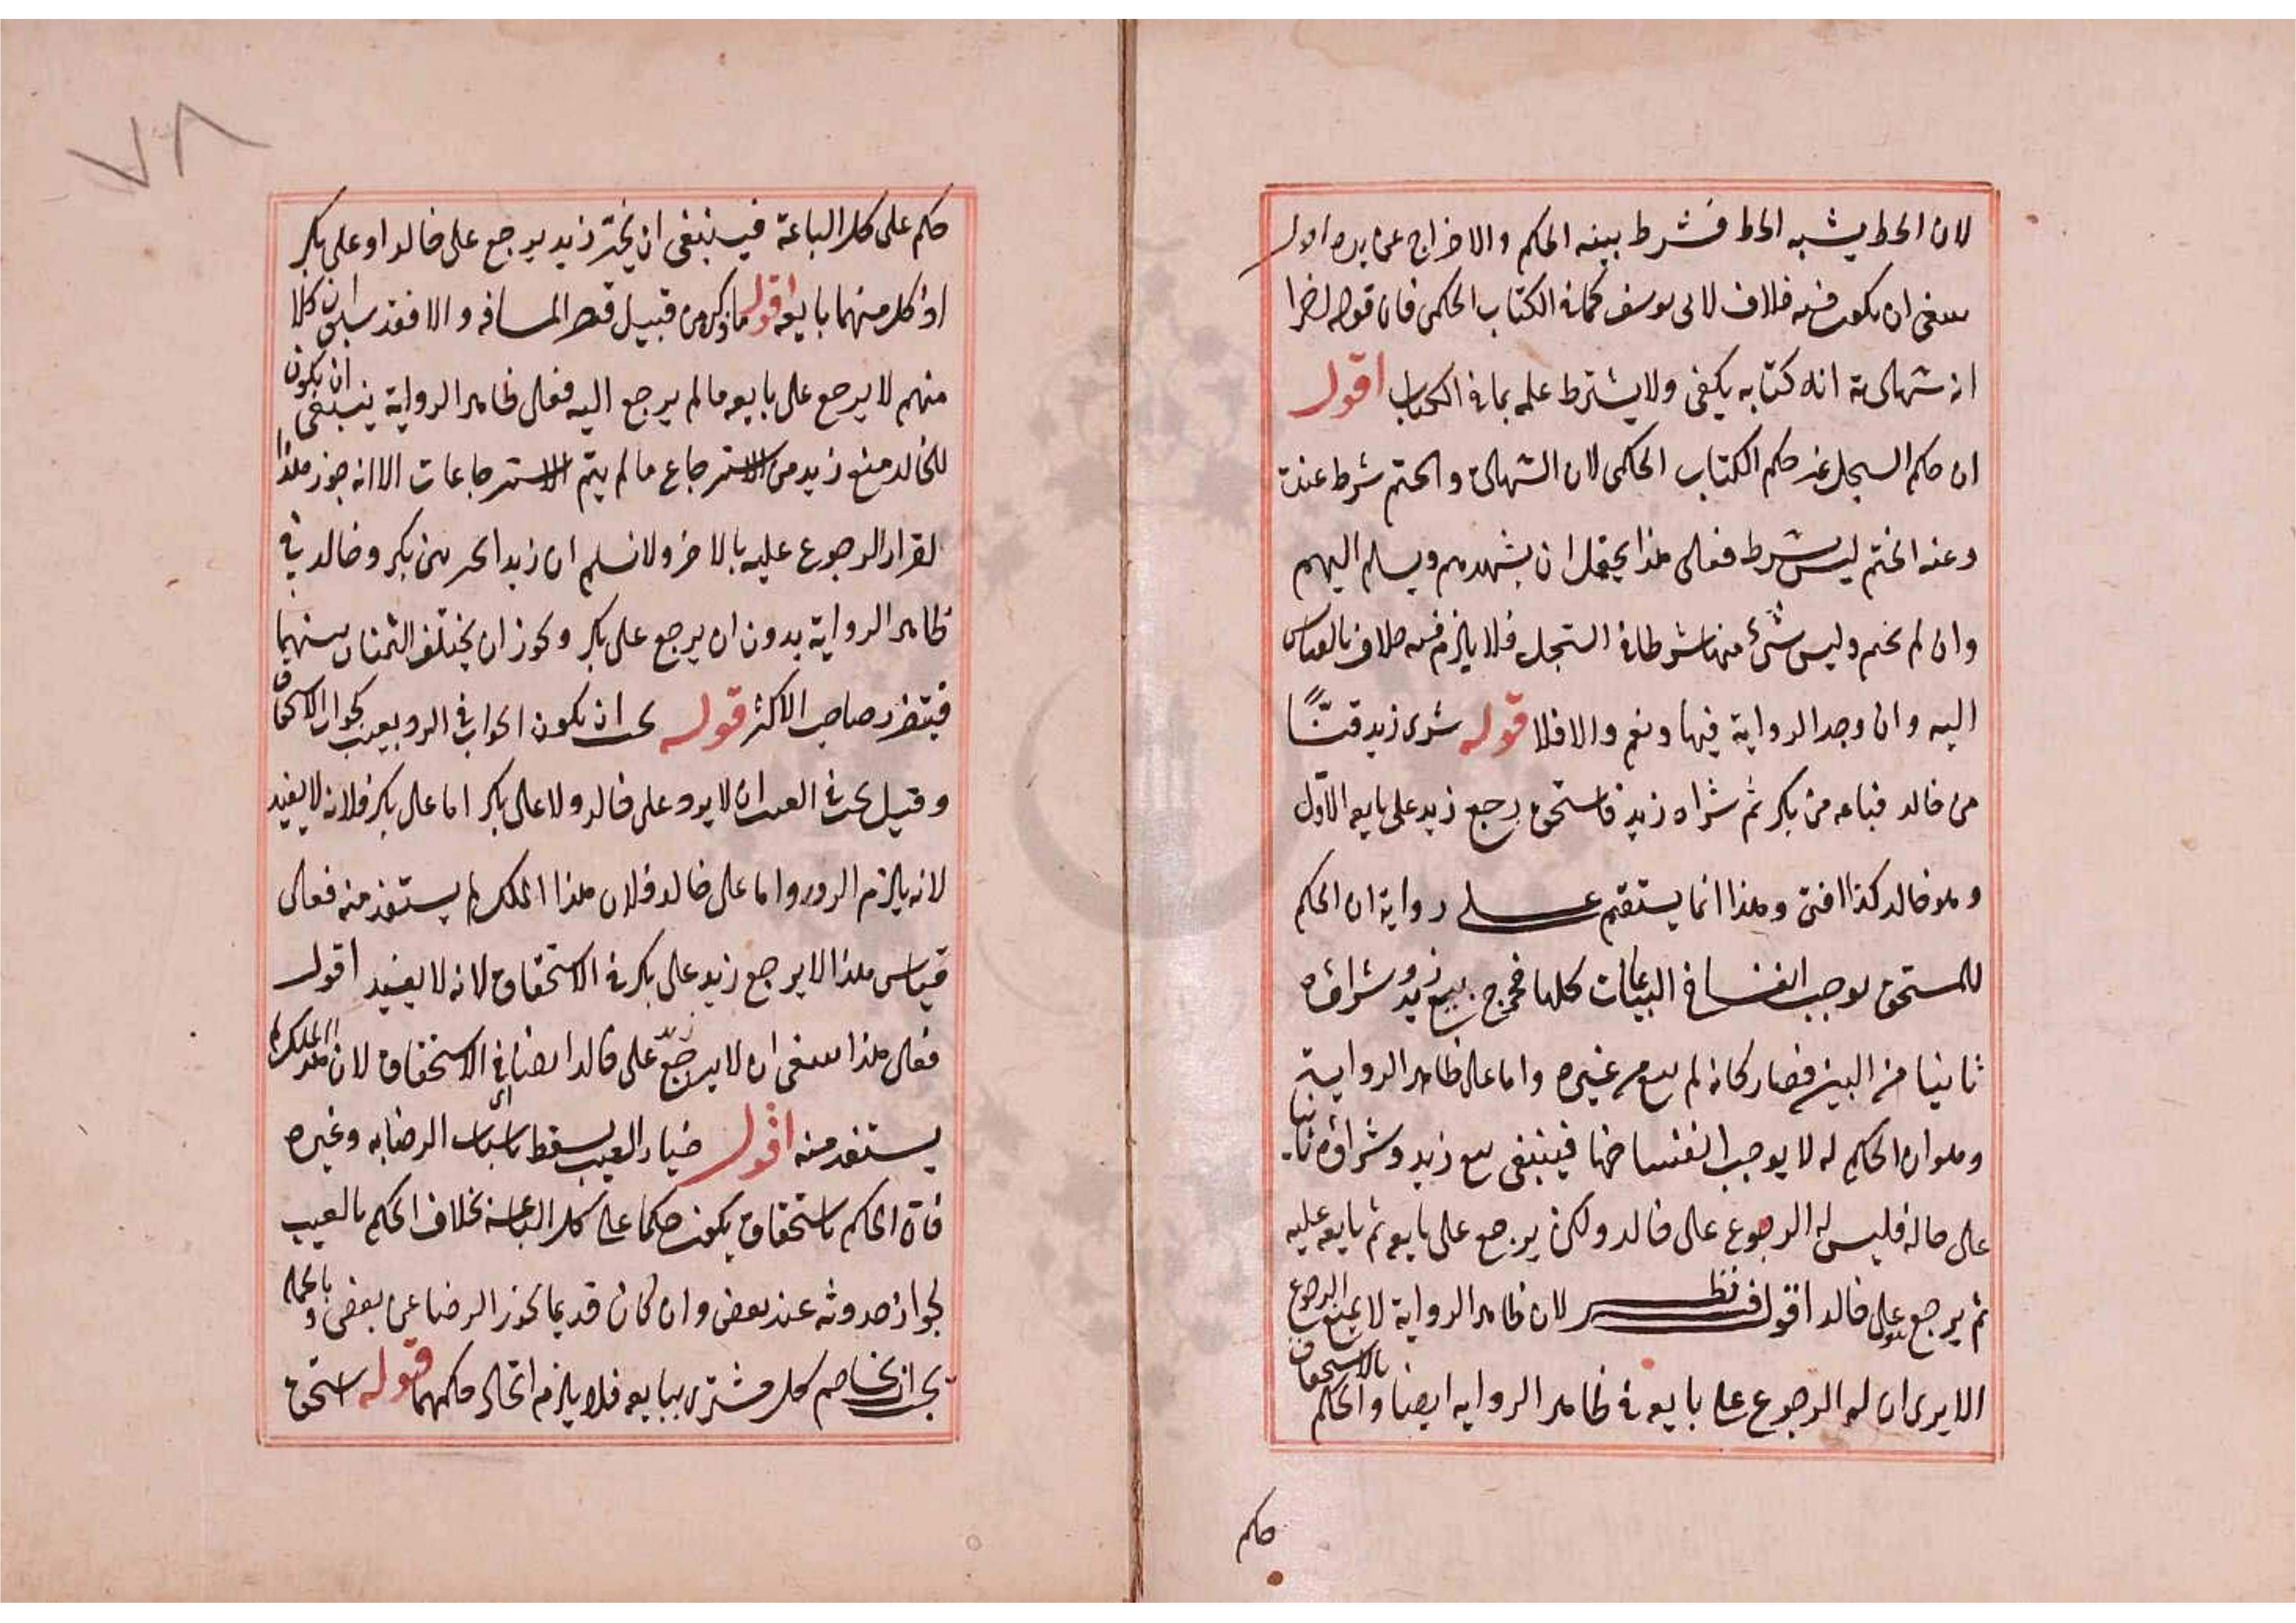 لان الخط يشبه الخط فشرط بينه الحكم والاخراج عن يده اقول
ينبغي ان يكون فيه خلاف لابي يوسف كما في الكتاب الحكمي فان قوله اخرا
ان شهادته انه كتابه يكفي ولا يشترط علم بما في الكتاب اقول
ان حكم السجل غير حكم الكتاب الحكمي لان الشهادة والختم شرط عنده
وعنه الختم ليس بشرط فعلى هذا يحتمل ان يشهدهم ويسلم اليهم
وان لم يختم وليس شيء منها شرطا في السجل فلا يلزم فيه خلاف بالقياس
اليه وان وجد الرواية فيها ونعم والا فلا قوله شرى زيد قنًّا
من خالد فباعه من بكر ثم شراه زيد فاستحق رجع زيد على بايعه الاوّل
وهو خالد كذا افتى وهذا انما يستقيم على رواية ان الحكم
للمستحق يوجب انفساخ البياعات كلها فخرج بيع زيد وشراؤه
ثانيا من البين فصار كانه لم يبع من غيره واما على ظاهر الرواية
وهو ان الحكم له لا يوجب انفساخها فينبغي بيع زيد وشراؤه ثانيا
على حاله فليس له الرجوع على خالد ولكن يرجع على بايعه ثم بايعه عليه
ثم يرجع هو على خالد اقول فيه نظر لان ظاهر الرواية لا يمنع الرجوع
الا يرى ان له الرجوع على بايعه في ظاهر الرواية ايضا والحكم بالاستحقاق
حكم
٧٨
حكم على كل الباعة فينبغي ان يخيّر زيد يرجع على خالد او على بكر
اذ كل منهما بايعه اقول ما ذكره من قبيل قطع المسافة والا فقد سبق ان كلا
منهم لا يرجع على بايعه ما لم يرجع اليه فعلى ظاهر الرواية ينبغي ان يكون
للخالد منع زيد من الاسترجاع ما لم يتم الاسترجاعات الا انه جوز هذا
لقرار الرجوع عليه بالاخر ولا نسلم ان زيدا يخير بين بكر وخالد في
ظاهر الرواية بدون ان يرجع على بكر وكوز ان يختلف الثمنان بينهما
فيتضرر صاحب الاكثر قوله يجب ان يكون الجواب في الرد بعيب كجواب الاستحقاق
وقيل يجب في العيب ان لا يرد على خالد ولا على بكر اما على بكر فلانه لا يفيد
لانه يلزم الدور واما على خالد فلان هذا الملك لم يستفد منه فعلى
قياس هذا لا يرجع زيد على بكر في الاستحقاق لانه لا يفيد اقول
فعلى هذا ينبغي ان لا يرجع زيد على خالد ايضا في الاستحقاق لان هذا الملك لم
يستفد منه اقول خيار العيب يسقط باسباب اي الرضا به وغيره
فان الحكم باستحقاق يكون حكما على كل الباعة بخلاف الحكم بالعيب
لجواز حدوثه عند بعض وان كان قديما يجوز الرضا عن بعض وبالجملة
يجب ان يخاصم كل مشتري ببايعه فلا يلزم اتحاد حكمهما قوله استحق